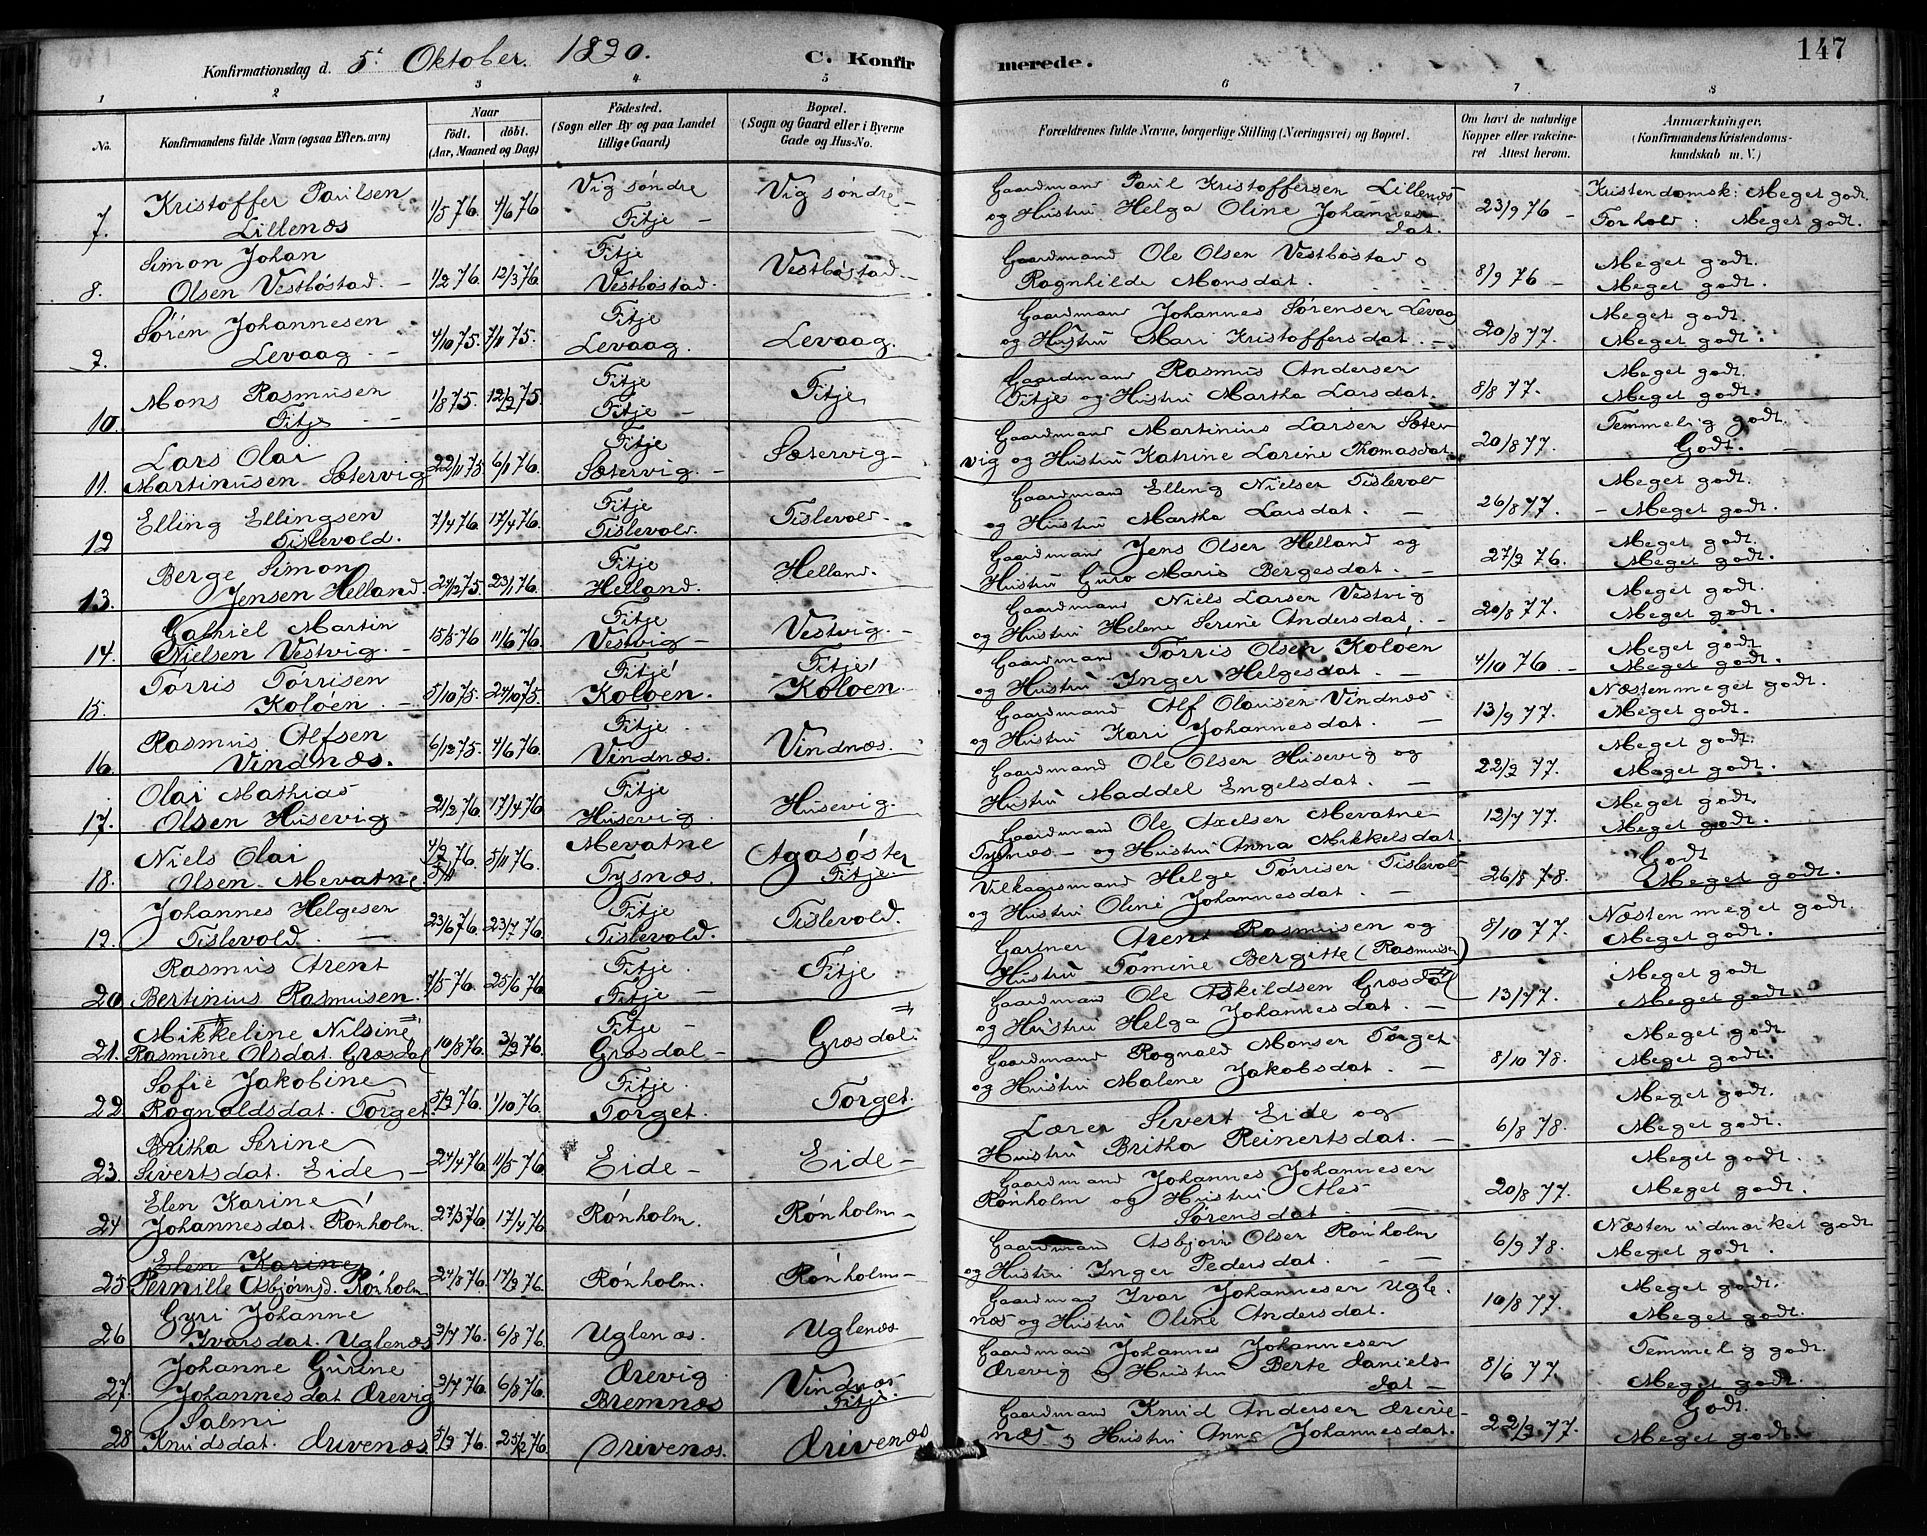 147
Konfirmationsdag d. 5t Oktober 1890. C. Konfirmerede.
1 2 3 4 5 6 7 8
No.
Konfirmandens fulde Navn (ogsaa Efternavn)
Naar
födt. döbt.
(Aar, Maaned og Dag)
Födested.
(Sogn eller By og paa Landet
tillige Gaard)
Bopæl.
(Sogn og Gaard eller i Byerne
Gade og Hus-No.
Forældrenes fulde Navne, borgerlige Stilling (Næringsvei) og Bopæl.
Om havt de naturlige
Kopper eller vakcine-
ret Attest herom.
Anmærkninger.
(Konfirmandens Kristendoms-
kundskab m. V.)
Kristoffer Paulsen 1/5 76. 4/6 76 Vig söndre Vig söndre - Gaardmand Paul Kristoffersen Lillenæs 23/9 76 - Kristendomsk: Meget godt.
7. Lillenæs Fitje - og Hustru Helga Oline Johannes- Forhold: Meget godt.
dat.
Simon Johan 1/2 76. 12/3 76. Fitje Vestböstad - Gaardmand Ole Olsen Vestböstad o 8/9 76 - Meget godt.
8. Olsen Vestböstad. - Vestböstad. Ragnhilde Monsdat. Meget godt.
Sören Johannesen 4/10 75. 7/11 75. Fitje Levaag. Gaardmand Johannes Sörensen Levaag 20/8 77. Meget godt.
9. Levaag - Levaag. og Hustru Mari Kristoffersdat. - Meget godt.
Mons Rasmusen 1/8 75. 12/9 75 Fitje Fitje Gaardmand Rasmus Andersen 8/8 77. Meget godt.
10. Fitje - Fitje - Fitje og Hustru Martha Larsdat. Meget godt.
Lars Olai 22/11 75. 6/1 76. Fitje Sætervig - Gaardmand Martinius Larsen Sæter- 20/8 77. Temmelig godt.
11. Martinusen Sætervig Sætervig - vig og Hustru Katrine Larine Thomasdat. Godt. -
Elling Ellingsen 7/4 76. 17/4 76. Fitje Tislevold. Gaardmand Elling Nielsen Tislevold 26/8 77. Meget godt.
12 Tislevold. Tislevold. og Hustru Martha Larsdat. - - Meget godt.
Berge Simon 27/12 75. 23/1 76. Fitje Helland. Gaardmand Jens Olsen Helland og 27/9 76. Meget godt.
13. Jensen Helland. Helland. Hustru Guro Maris Bergesdat. - Meget godt.
Gabriel Martin 15/5 76 11/6 76. Fitje Vestvig. - Gaardmand Niels Larsen Vestvig 20/8 77. Meget godt.
14. Nielsen Vestvig. - Vestvig - og Hustru Helene Serine Andersdat. - Meget godt.
Törris Törrisen 5/10 75. 24/10 75. Fitje Fitje Gaardmand Törris Olsen Kolöen 4/10 76 - Meget godt
15. Kolöen. - Kolöen. Kolöen. og Hustru Inger Helgesdat. - Meget godt.
Rasmus Alfsen 6/12 75. 4/6 76. Fitje Vindnæs. Gaardmand Alf Olausen Vindnæs 13/9 77. Næsten meget godt.
16. Vindnæs. Vindnæs. og Hustru Kari Johannesdat. - Meget godt.
Olai Mathias 21/2 76. 17/4 76 Fitje Husevig. Gaardmand Ole Olsen Husevig og 22/9 77. Meget godt.
17. Olsen Husevig Husevig. Hustru Maddel Engelsdat. - Meget godt.
Niels Olai 4/9 76. 5/11 76. Mevatne Agasöster Gaardmand Ole Axelsen Mevatne 12/7 77 Meget godt.
18. Olsen Mevatne. Tysnæs. Fitje. Tysnæs - og Hustru Anna Mikkelsdat. Meget godt.
Johannes Helgesen 23/6 76. 23/7 76. Fitje Tislevold. Vilkaarsmand Helge Törrisen Tislevold 26/8 78. Godt
19. Tislevold. - Tislevold. og Hustru Oline Johannesdat. - Meget godt.
Rasmus Arent 7/5 76. 25/6 76. Fitje. Fitje Gartner Arent Rasmusen og 8/10 77. Næsten meget godt.
20. Bertinius Rasmusen. Fitje - Hustru Tomine Bergitte (Rasmusen) Meget godt.
Mikkeline Nilsine 10/8 76. 3/9 76. Fitje - Græsdal. Gaardmand Ole Askildsen Græsdal 13/ 77. Meget godt
21. Rasmine Olsdat. Græsdal Græsdal - og Hustru Helga Johannesdat. - Meget godt.
Sofie Jakobine 5/9 76. 1/10 76. Fitje. Torget. Gaardmand Rognald Monsen Torget 8/10 78. Meget godt
22 Rognaldsdat. Torget. Torget. og Hustru Malene Jakobsdat. - Meget godt.
Britha Serine 24/4 76 11/5 76. Eide - Eide - Lærer Sivert Eide og 6/8 78. Meget godt.
23. Sivertsdat. Eide - Hustru Britha Reinertsdat. - Meget godt.
Elen Karine 27/3 76. 17/4 76 Rönholm. Rönholm - Gaardmand Johannes Johannesen 20/8 77. Meget godt.
24 Johannesdat. Rönholm. Rönholm og Hustru Ales Meget godt.
Sörensdat. -
Elen Karine 24/8 76. 17/9 76. Rönholm. Rönholm - Gaardmand Asbjörn Olsen Rönholm 6/9 78. Næsten udmærket godt
25 Pernille Asbjörnsd. Rönholm og Hustru Inger Pedersdat. - Meget godt.
Gyri Johanne 3/7 76. 6/8 76. Uglenæs. Uglenæs Gaardman Ivar Johannesen Ugle- 10/8 77. Meget godt.
26 Ivarsdat. Uglenæs næs og Hustru Oline Andersdat. Meget godt.
Johanne Gurine 9/7 76. 6/8 76. Ærevig Vindnæs Gaardmand Johannes Johannesen 8/6 77. Temmelig godt.
27. Johannesdat Ærevig Bremnæs Fitje. Ærevig og Hustru Berte Daniels- Meget godt.
dat -
Salmi 5/9 76. 25/ 76. Drivenæs. Drivenæs Gaardmand Knud Andersen Drive- 22/9 77. Godt.
28 Knudsdat. Drivenæs. næs og Hustru Anna Johannesdat. Meget godt.